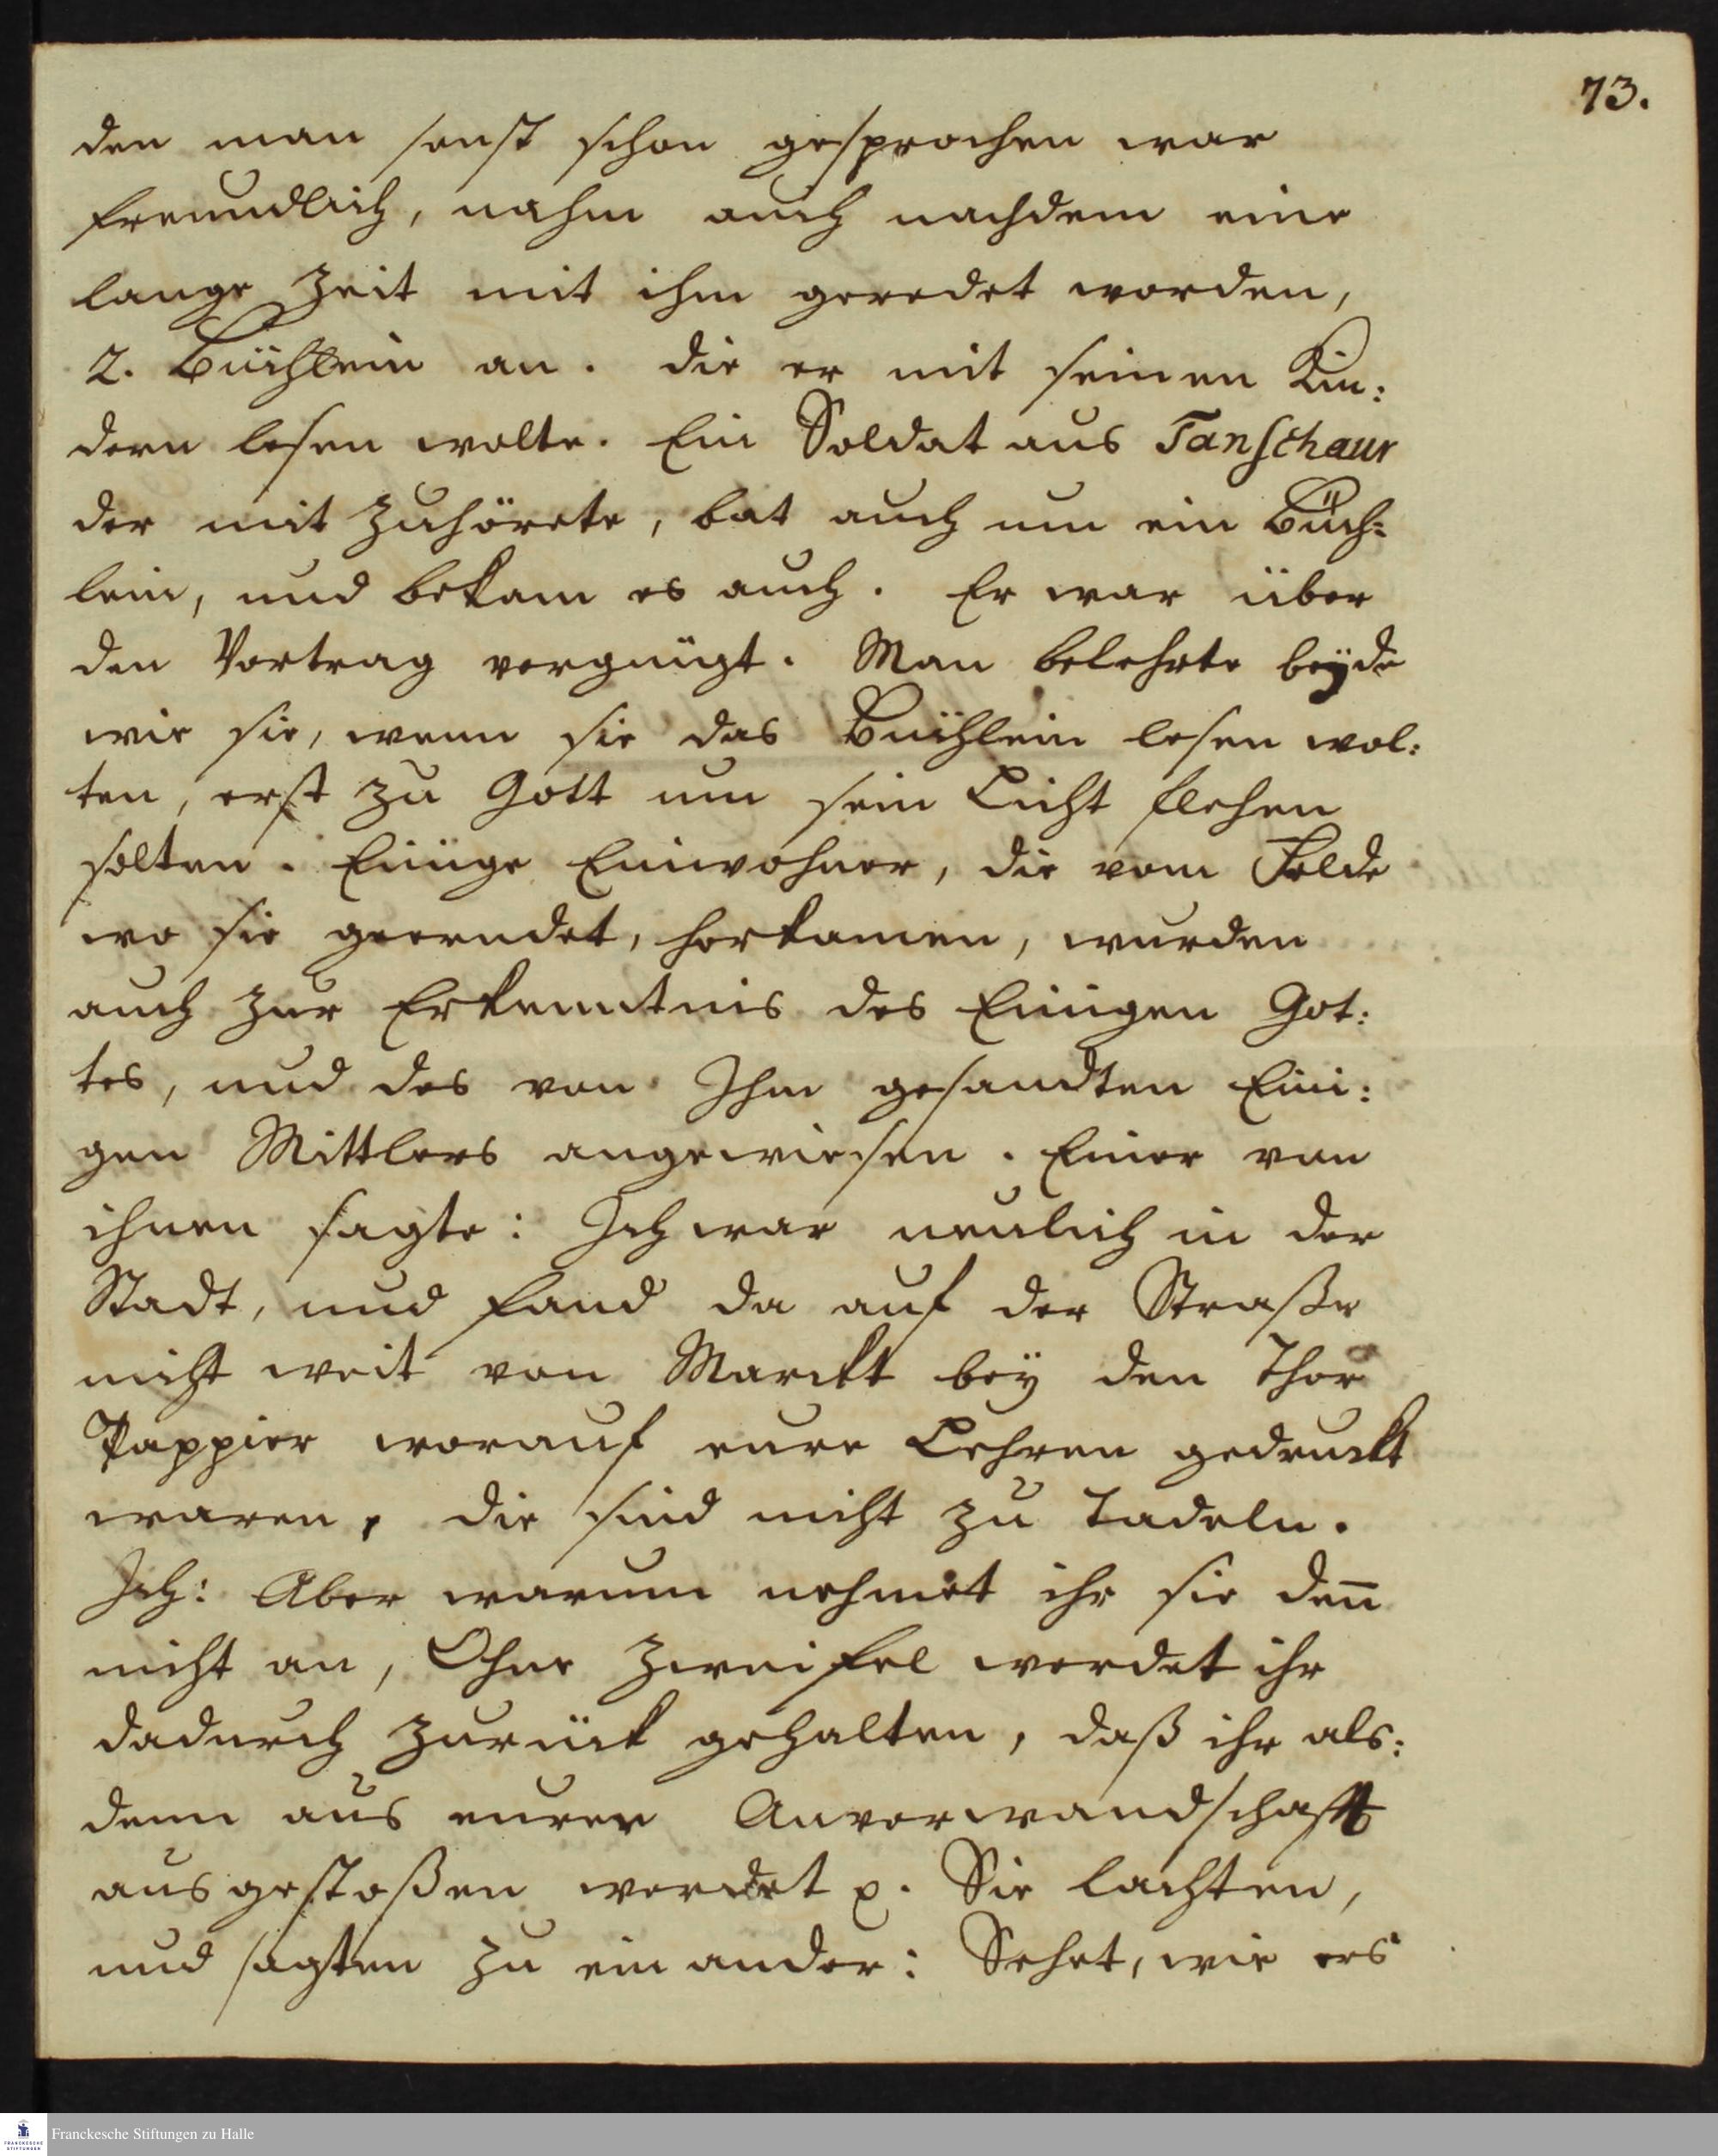 73.
den man sonst schon gesprochen war
freundlich, nahm auch nachdem eine
lange Zeit mit ihm geredet worden,
2. Büchlein an. die er mit seinen Kin:
dern lesen wolte. Ein Soldat aus Tanschaur
der mit zuhörete, bat auch um ein Büch=
lein, und bekam es auch. Er war über
den Vortrag vergnügt. Man belehrte beÿde
wie sie, wenn sie das Büchlein lesen wol:
ten, erst zu Gott um sein Licht flehen
solten. Einige Einwohner, die vom Felde
wo sie geerndet, herkamen, wurden
auch zur Erkenntnis des Einigen Got:
tes, und des von Ihm gesandten Eini:
gen Mittlers angewiesen. Einer von
ihnen sagte: Ich war neulich in der
Stadt, und fand da auf der Straße
nicht weit von Marckt beÿ den Thor
Pappier worauf eure Lehren gedruckt
waren, die sind nicht zu tadeln.
Ich: Aber warum nehmet ihr sie deñ
nicht an, Ohne Zweifel werdet ihr
dadurch zurück gehalten, daß ihr als:
denn aus eurer Anverwandschafft
ausgestoßen werdet p. Sie lachten,
und sagten zu einander: Sehet, wie ers
Franckesche Stiftungen zu Halle